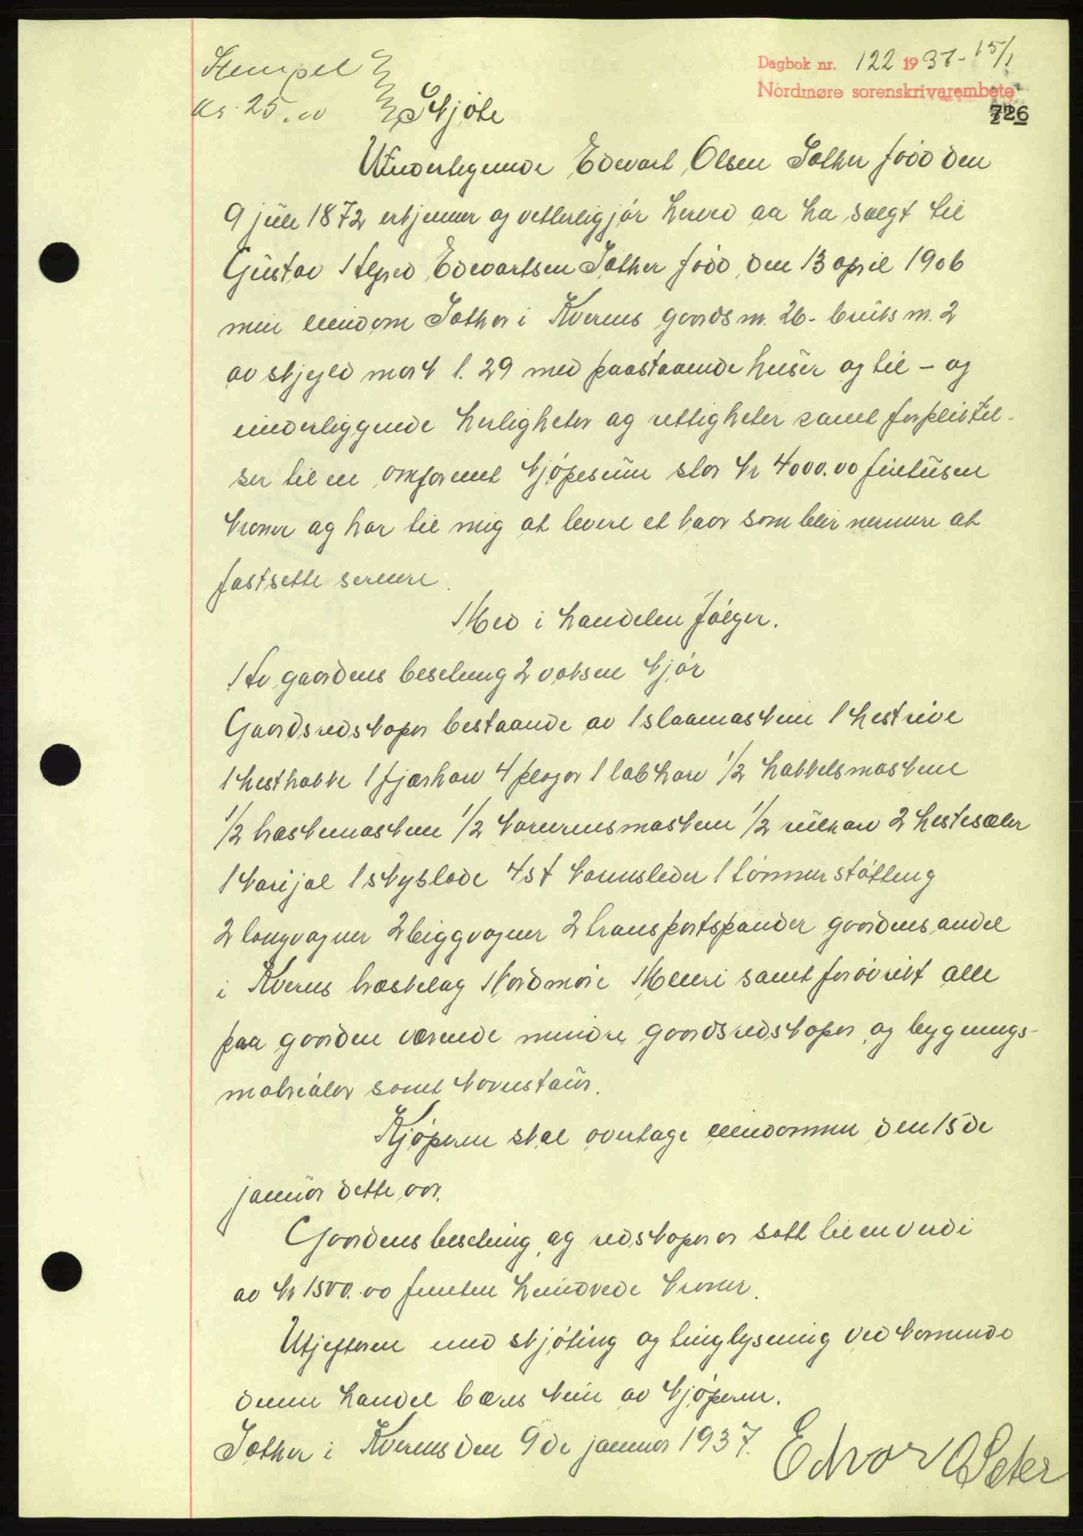 Stempel
kr. 25.00 Skjøte
Dagbok nr. 122 1937 - 15/1
Nordmøre sorenskriverembete
726
Undertegnede Edvart Olsen Sæther född den
9 juli 1872 erkjenner og vetterligjör herved aa ha solgt til
Gustav Alfred Edvartsen Sæther född den 13 april 1906
min eiendom Sæther i Kvernes gaards nr. 26 - bruks nr. 2
av skjyld mark 1.29 med paastaaende huser og til - og
underliggende herligheter og rettigheter samt forpliktel-
ser til en omforent kjöpesum stor kr 4000.00 firetusen
kroner og har til mig at levere et kaar som blir nermere at
fastsette senere.
Med i handelen fölger.
Av gaardens besetning 2 voksne kjör
Gaardsredskaper bestaande av 1 slaamaskin 1 hestrive
1 hesthakke 1 fjærharv 4 ploger 1 labharv 1/2 hakkelsmaskine
1/2 træskemaskine 1/2 kornrensmaskine 1/2 rulharv 2 hestesæler
1 karjol 1 skyslæde 4 st kornsleder 1 tömmerstötting
2 langvogner 2 giggvogner 2 transportspander gaardens andel
i Kvernes træskelag Nordmöre Meieri samt forövrikt alle
paa gaarden værende mindre gaardsredskaper og bygnings-
matrialer samt kornstaur.
Kjöperen skal overtage eiendommen den 15de
januar dette aar.
Gaardens besetning og redskaper er satt til en verdi
av kr 1500.00 femten hundrede kroner.
Utjefterne med skjöting og tinglysening vedkommende
denne handel bæres kun av kjöperen.
Sæther i Kvernes den 9de januar 1937. Edvart O Seter